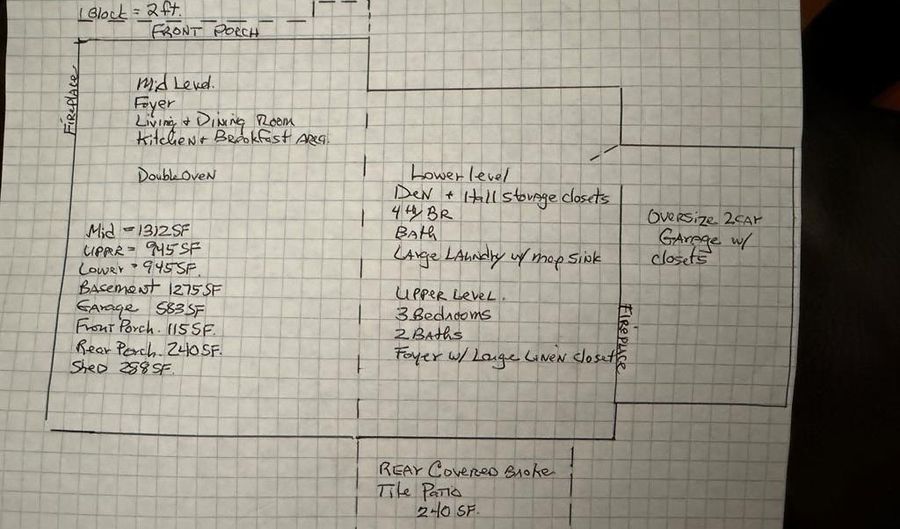 1 Block = 2 ft.
FRONT PORCH
Fireplace
Mid Level.
Foyer
Living + Dining Room
Kitchen + Breakfast Area.
Double Oven
Mid = 1312 SF
UPPER = 945 SF
Lower = 945 SF.
Basement 1275 SF
Garage 583 SF
Front Porch. 115 SF.
Rear Porch. 240 SF.
Shed 288 SF.
Lower level
Den + Hall storage closets
4th BR
Bath
Large Laundry w/ mop sink
Upper Level.
3 Bedrooms
2 Baths
Foyer w/ Large Linen closet
Fireplace
Oversize 2 car
Garage w/
closets
REAR Covered Broke
Tile Patio
240 SF.